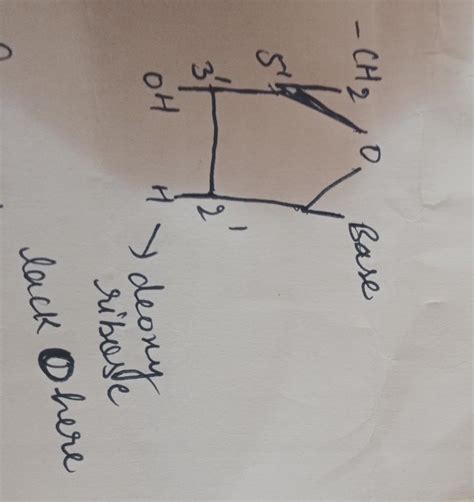 -CH2
5'
O
3'
OH
Base
2'
H
→ deoxy
ribose
lack O here